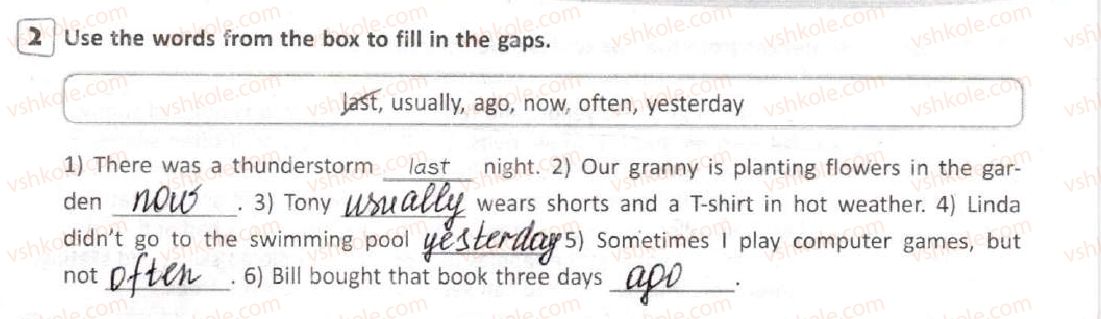 2 Use the words from the box to fill in the gaps.
last, usually, ago, now, often, yesterday
1) There was a thunderstorm last night. 2) Our granny is planting flowers in the gar-
den now. 3) Tony usually wears shorts and a T-shirt in hot weather. 4) Linda
didn't go to the swimming pool yesterday 5) Sometimes I play computer games, but
not often. 6) Bill bought that book three days ago.